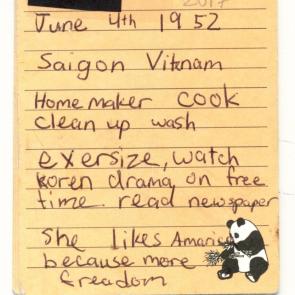 2017
June 4th 1952
Saigon Vitnam
Home maker cook
clean up wash
exersize, watch
koren drama on free
time. read newspaper
She likes Amarica
because more
freadom